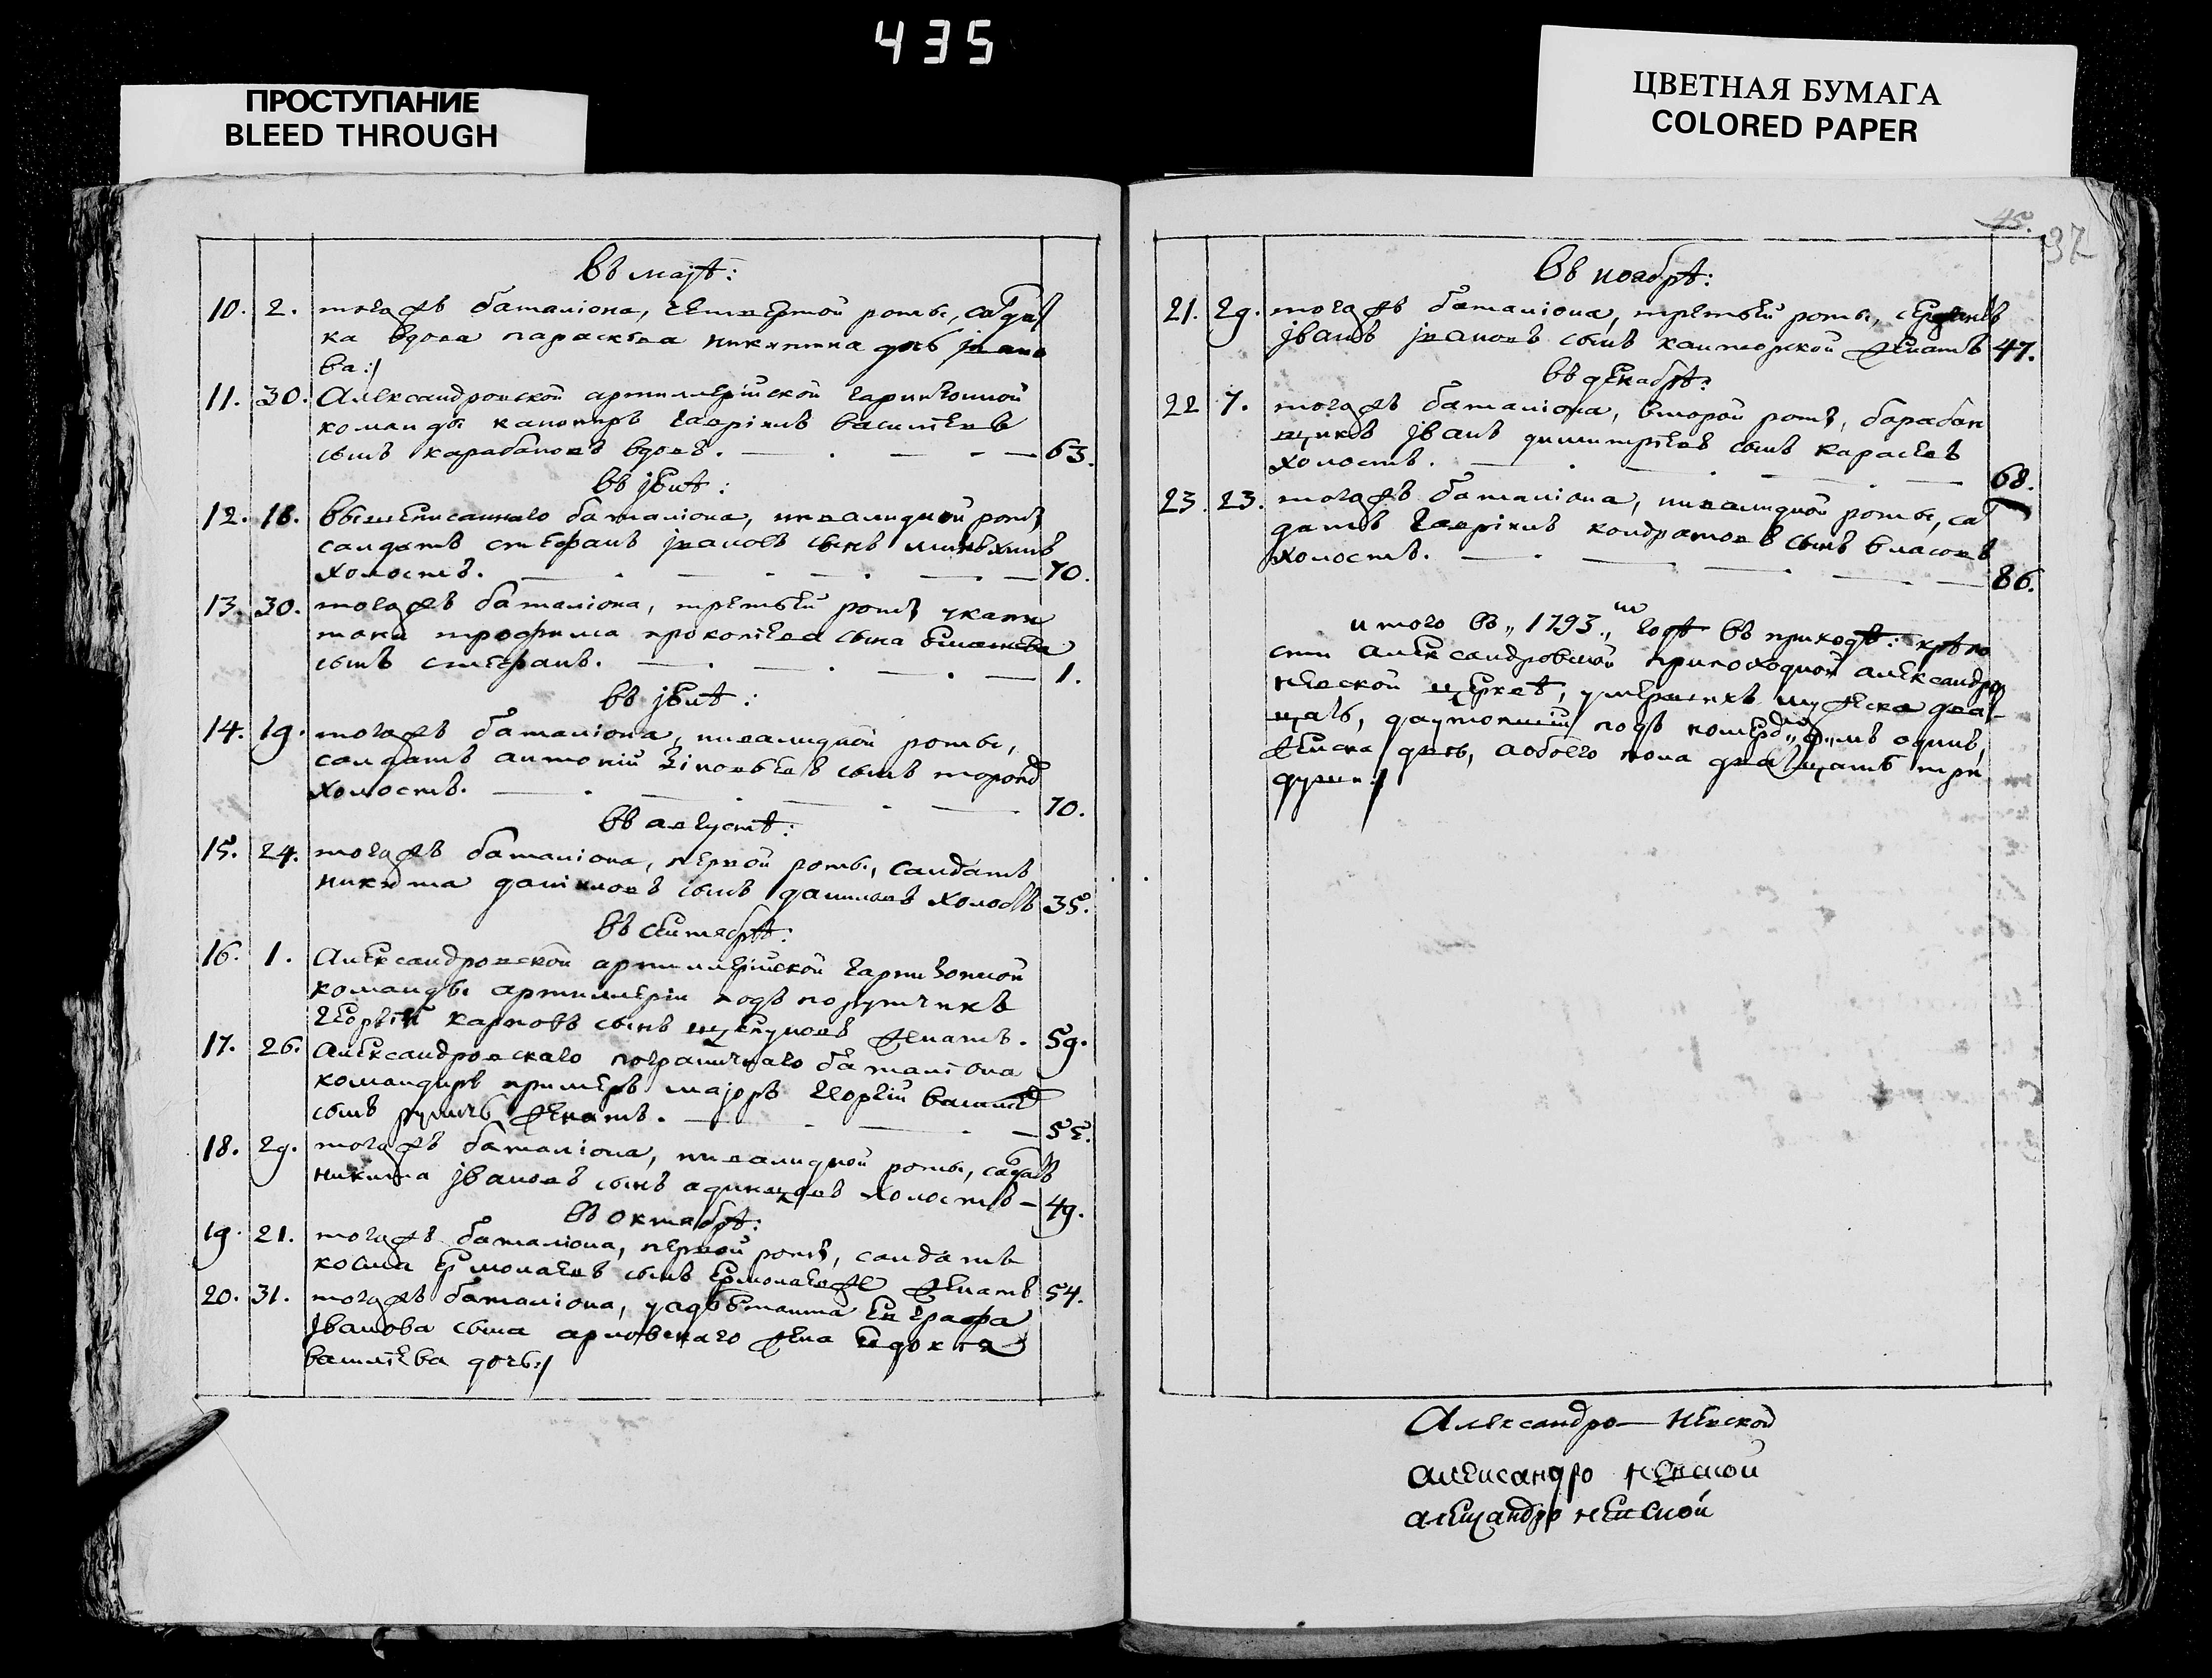 435
ПРОСТУПАНИЕ
BLEED THROUGH
ЦВЕТНАЯ БУМАГА
COLORED PAPER
въ маіѣ:
10. 2. тогожъ баталіона, четвертой роты, салдат
ка вдова параскева никитина дочь івано
ва:/
11. 30. Александровской артиллерійской гарнизонной
команды канониръ гавріилъ васильевъ
сынъ карабановъ вдовъ. 63.
въ іюнѣ:
12. 18. вышеписаннаго баталіона, инвалидной роты
салдатъ стефанъ івановъ сынъ
холостъ. 70.
13. 30. тогожъ баталіона, третьей роты
трофима прокопіева сына
сынъ стефанъ. 1.
въ іюлѣ:
14. 19. тогожъ баталіона, инвалидной роты,
салдатъ антоній зіновьевъ сынъ
холостъ. 70.
въ августѣ:
15. 24. тогожъ баталіона, первой роты, салдатъ
никита даніиловъ сынъ даниловъ холостъ 35.
въ сентябрѣ:
16. 1. Александровской артиллерійской гарнизонной
команды артиллеріи подъ порутчикъ
георгій карповъ сынъ женатъ. 59.
17. 26. Александровскаго пограничнаго баталіона
командиръ примеръ маіоръ георгій василіе
сынъ женатъ. 55.
18. 29. тогожъ баталіона, инвалидной роты, салдатъ
никита івановъ сынъ одинцовъ холостъ 49.
въ октябрѣ:
19. 21. тогожъ баталіона, первой роты, салдатъ
косма ермолаевъ сынъ ермолаевже женатъ 54.
20. 31. тогожъ баталіона, уадъютанта евграфа
іванова сына жена евдокія
василіева дочь:/
45.
37
въ ноябрѣ:
21. 29. тогожъ баталіона, третьей роты,
іванъ івановъ сынъ канторской женатъ 47.
въ декабрѣ:
22 7. тогожъ баталіона, второй роты, барабан
щикъ іванъ димитріевъ сынъ карасевъ
холостъ. 68.
23. 23. тогожъ баталіона, инвалидной роты, сал
датъ гавріилъ кондратовъ сынъ власовъ
холостъ. 86.
итого въ „1793„ м годѣ въ приходѣ: крѣпо
сти александровской александро
невской церквѣ, умершихъ мужеска два
цать, подъ одинъ,
женска два, аобоего пола двадцать три
души:/
Александро Невской
александро невской
александро невской